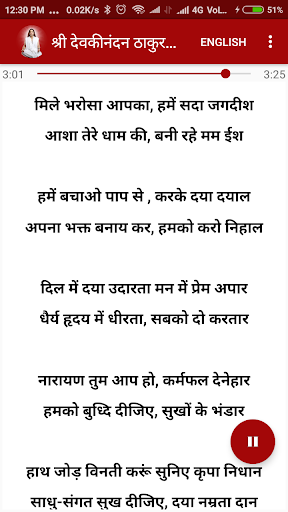 12:30 PM ... 0.02K/s 4G VoL... 51%
श्री देवकीनंदन ठाकुर... ENGLISH
3:01 3:25
मिले भरोसा आपका, हमें सदा जगदीश
आशा तेरे धाम की, बनी रहे मम ईश
हमें बचाओ पाप से , करके दया दयाल
अपना भक्त बनाय कर, हमको करो निहाल
दिल में दया उदारता मन में प्रेम अपार
धैर्य हृदय में धीरता, सबको दो करतार
नारायण तुम आप हो, कर्मफल देनेहार
हमको बुध्दि दीजिए, सुखों के भंडार
हाथ जोड़ विनती करूं सुनिए कृपा निधान
साधु-संगत सुख दीजिए, दया नम्रता दान